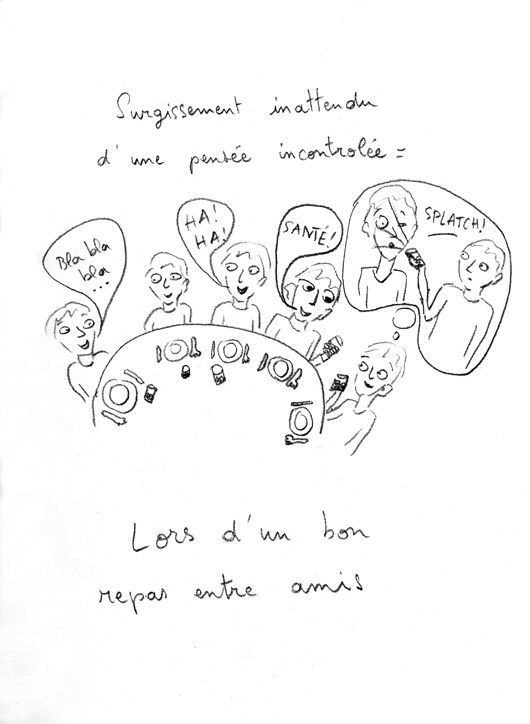 Surgissement inattendu
d'une pensée incontrolée =
Bla bla
bla
...
HA!
HA!
SANTÉ!
SPLATCH!
Lors d'un bon
repas entre amis